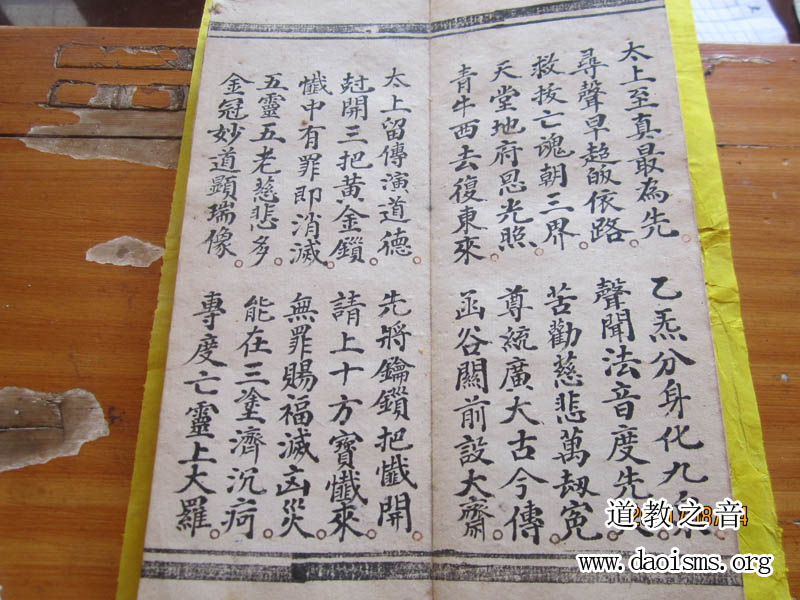 太上至真最為先。乙炁分身化九
尋聲早超皈依路。聲聞法音度先
救拔亡魂朝三界。苦勸慈悲萬劫冤
天堂地府恩光照。尊統廣大古今傳
青牛西去復東來。函谷關前設大齋
太上留傳演道德。先將鑰鎖把懺開
尅開三把黃金鎖。請上十方寶懺來
懺中有罪即消滅。無罪賜福滅凶災
五靈五老慈悲多。能在三塗濟沉疴
金冠妙道顯瑞像。專度亡靈上大羅
道教之音
www.daoisms.org